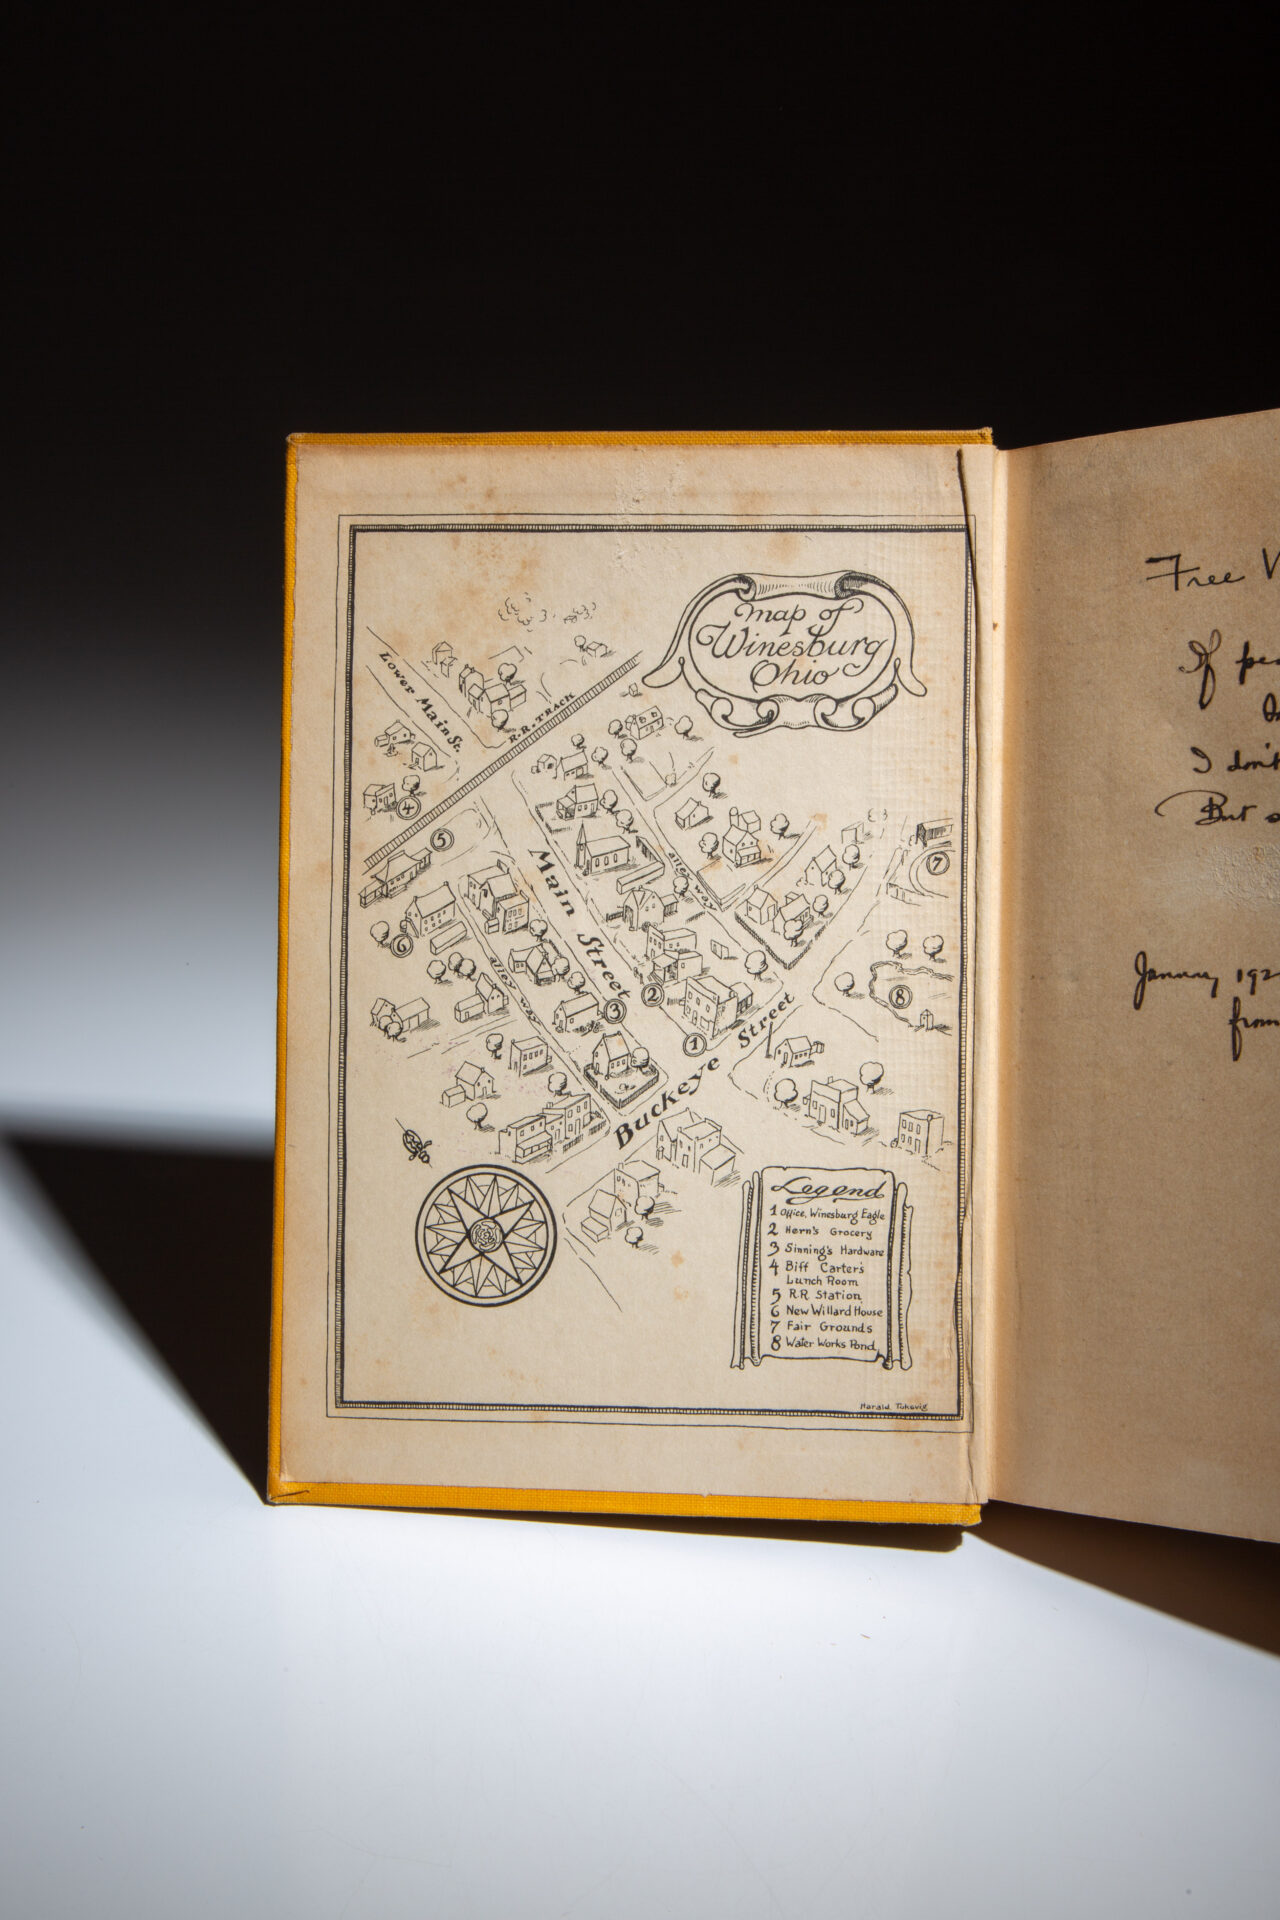 Map of
Winesburg
Ohio
Lower Main St.
R.R. TRACK
4
5
Main Street
alley way
7
6
alley way
8
2
3
1
Buckeye Street
Legend
1 Office, Winesburg Eagle
2 Hern's Grocery
3 Sinning's Hardware
4 Biff Carter's
Lunch Room
5 R.R. Station
6 New Willard House
7 Fair Grounds
8 Water Works Pond
Harald
Free
If
I don't
But
January 192
from